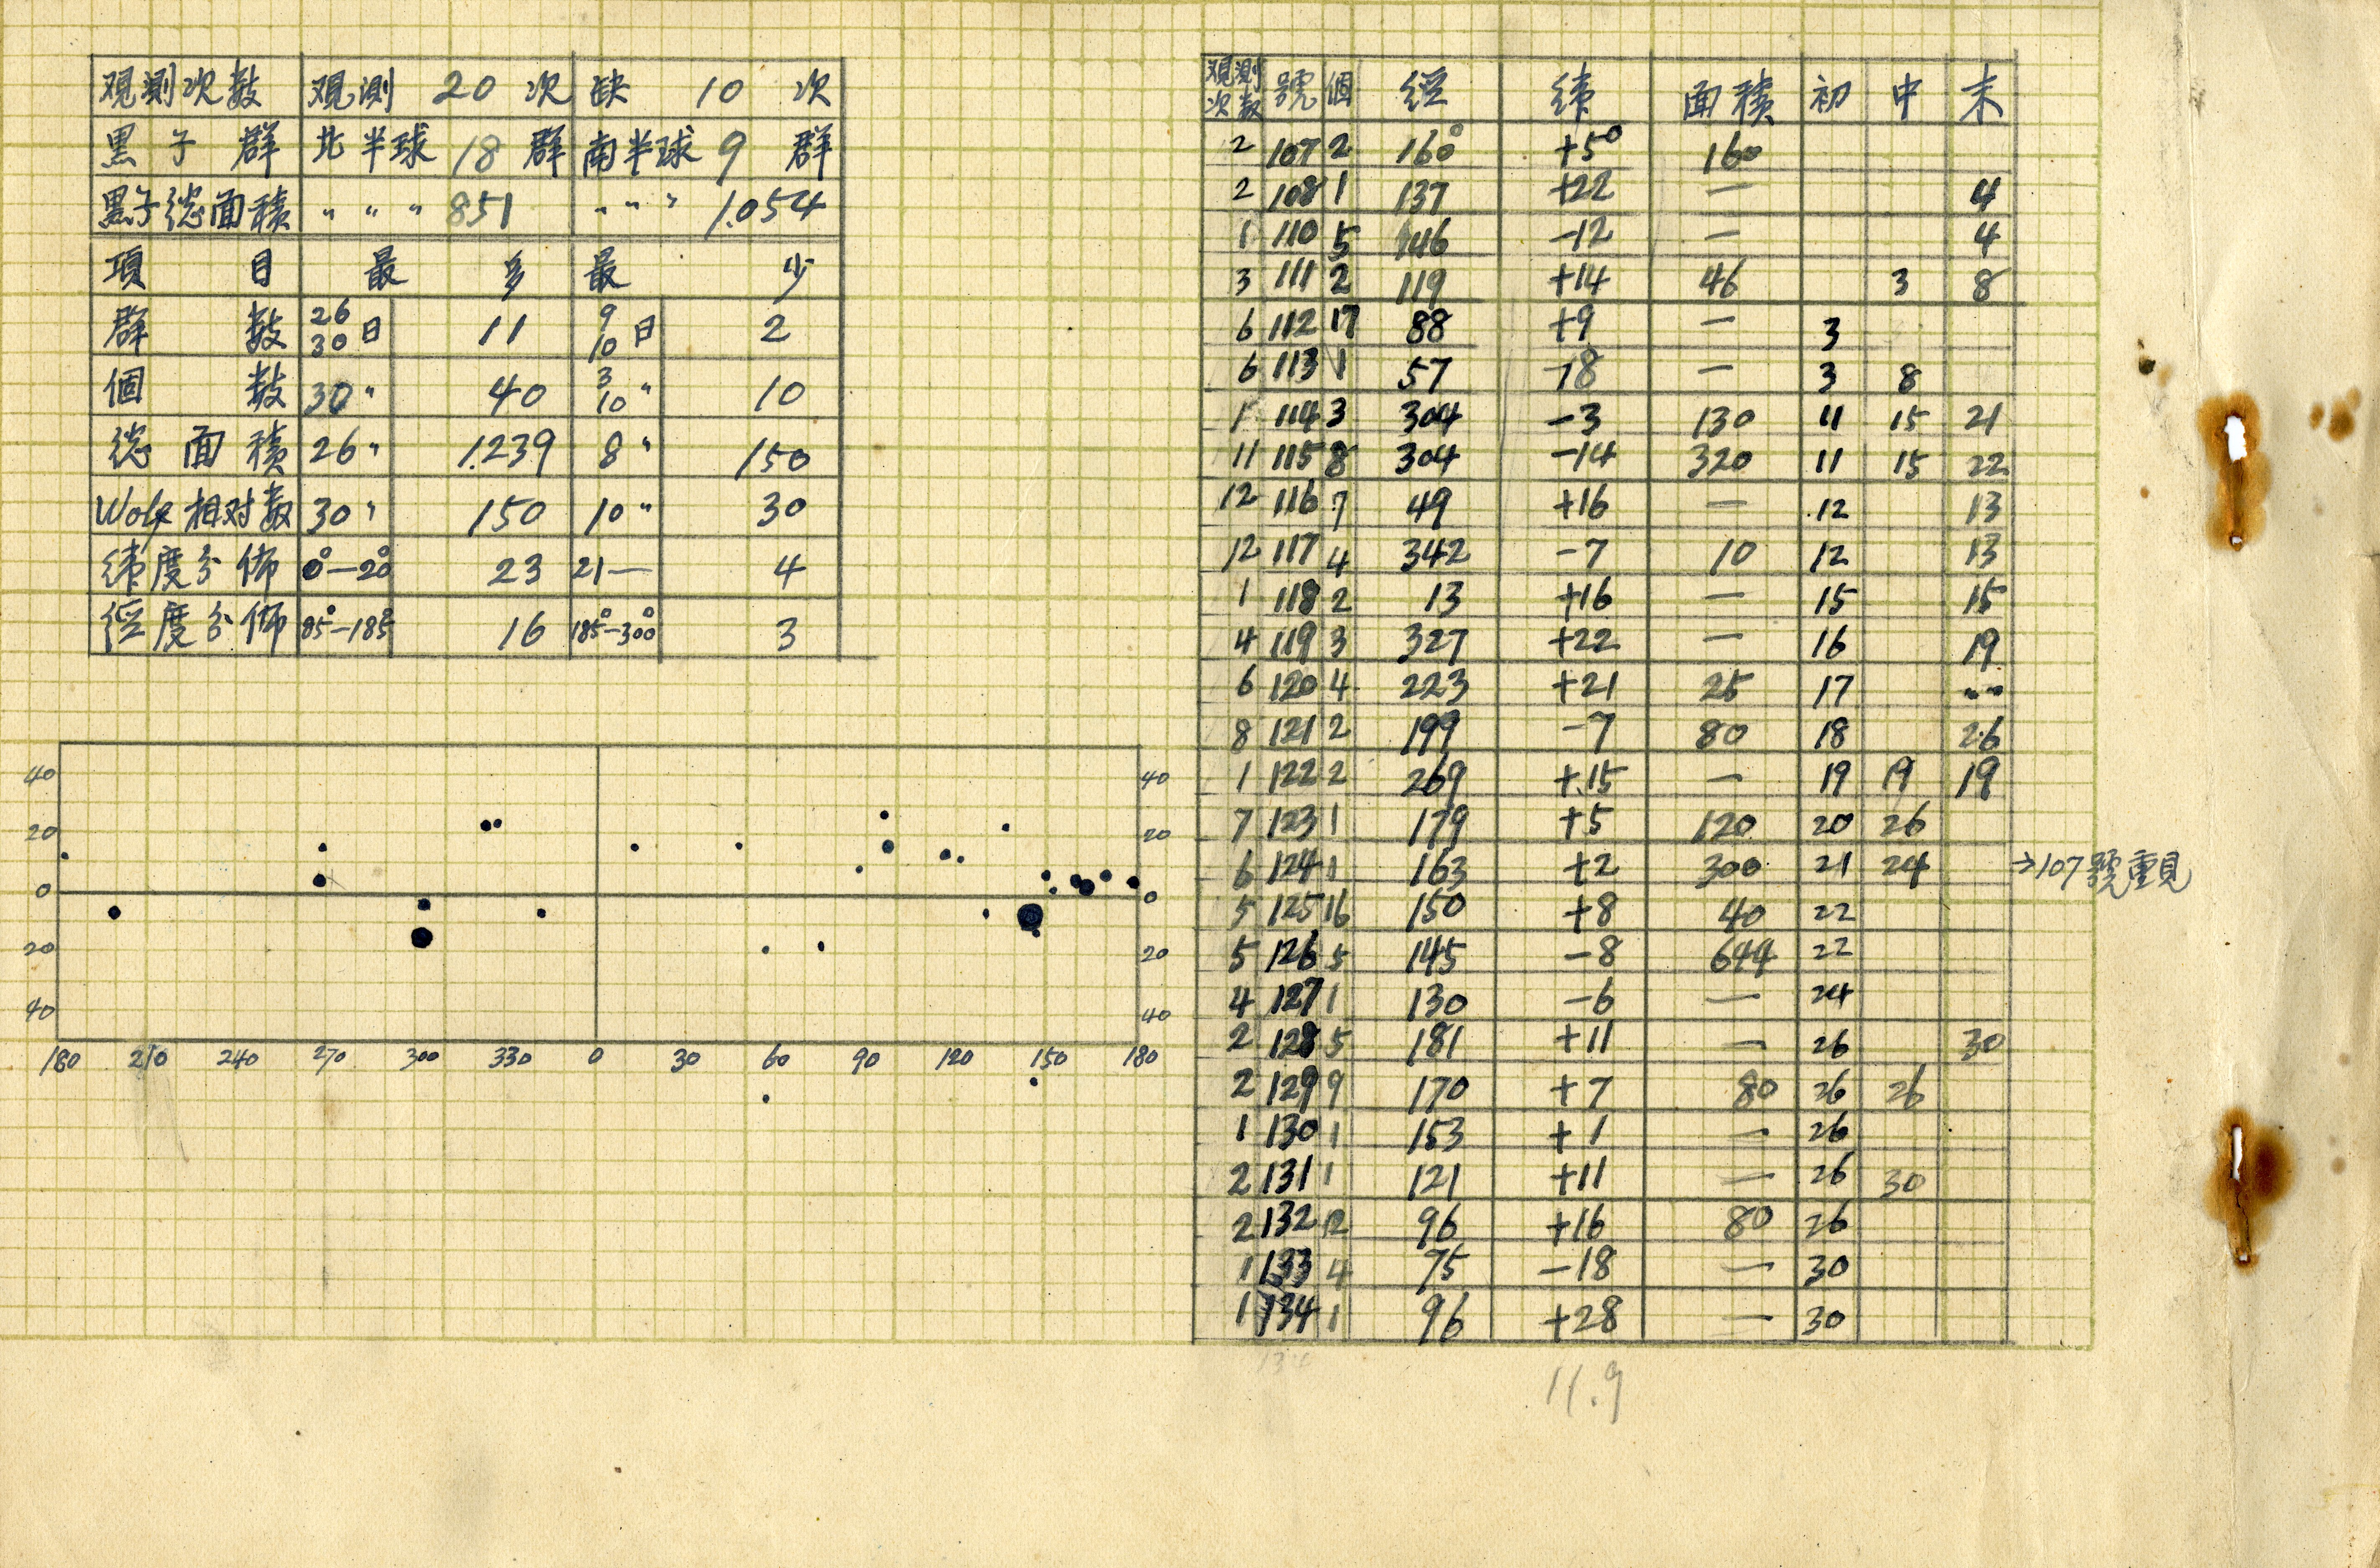 観測次数 観測 20 次 缺 10 次
黒子群 北半球 18 群 南半球 9 群
黒子総面積 〃 〃 〃 851 〃 〃 〃 1.054
項目 最多 最少
群数 26 30日 11 9 10日 2
個数 30〃 40 3 10〃 10
総面積 26〃 1.239 8〃 150
Wolf相対数 30〃 150 10〃 30
緯度分佈 0°—20° 23 21— 4
経度分佈 85°—185° 16 185°—300° 3
40 40
20 20
0 0
20 20
40 40
180 210 240 270 300 330 0 30 60 90 120 150 180
観測次数 號 個 経 緯 面積 初 中 末
2 107 2 160° +5° 160
2 108 1 137 +22 — 4
1 110 5 146 -12 — 4
3 111 2 119 +14 46 3 8
6 112 17 88 +9 — 3
6 113 1 57 -18 — 3 8
1 114 3 304 -3 130 11 15 21
11 115 8 304 -14 320 11 15 22
12 116 7 49 +16 — 12 13
12 117 4 342 -7 10 12 13
1 118 2 13 +16 — 15 15
4 119 3 327 +22 — 16 19
6 120 4 223 +21 25 17 〃
8 121 2 199 -7 80 18 26
1 122 2 269 +15 — 19 19 19
7 123 1 179 +5 120 20 26
6 124 1 163 +2 300 21 24 →107號重見
5 125 16 150 +8 40 22
5 126 5 145 -8 644 22
4 127 1 130 -6 — 24
2 128 5 181 +11 — 26 30
2 129 9 170 +7 80 26 26
1 130 1 153 +1 — 26
2 131 1 121 +11 — 26 30
2 132 12 96 +16 80 26
1 133 4 75 -18 — 30
1 134 1 96 +28 — 30
11.9